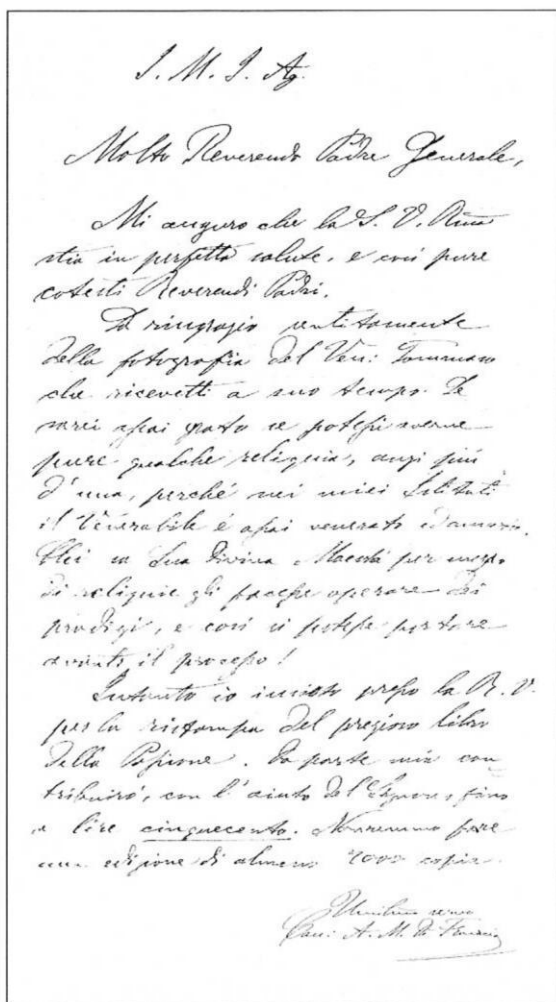 I. M. I. Ag.
Molto Reverendo Padre Generale,
Mi auguro che la S. V. Rma
stia in perfetta salute, e così pure
cotesti Reverendi Padri.
La ringrazio sentitamente
della fotografia del Ven: Tommaso
che ricevetti a suo tempo. Le
sarei assai grato se potessi averne
pure qualche reliquia, anzi più
d'una, perché nei miei Istituti
il Venerabile é assai venerato ed amato.
Chi sa Sua Divina Maestà per mezzo
di reliquie gli facesse operare dei
prodigi, e così si potesse portare
avanti il processo!
Intanto io insisto presso la R. V.
per la ristampa del prezioso libro
della Passione. Da parte mia con
tribuirò, con l'aiuto del Signore, fino
a lire cinquecento. Vorremmo fare
una edizione di almeno 2000 copie.
servo
Can: A. M. Di Francia